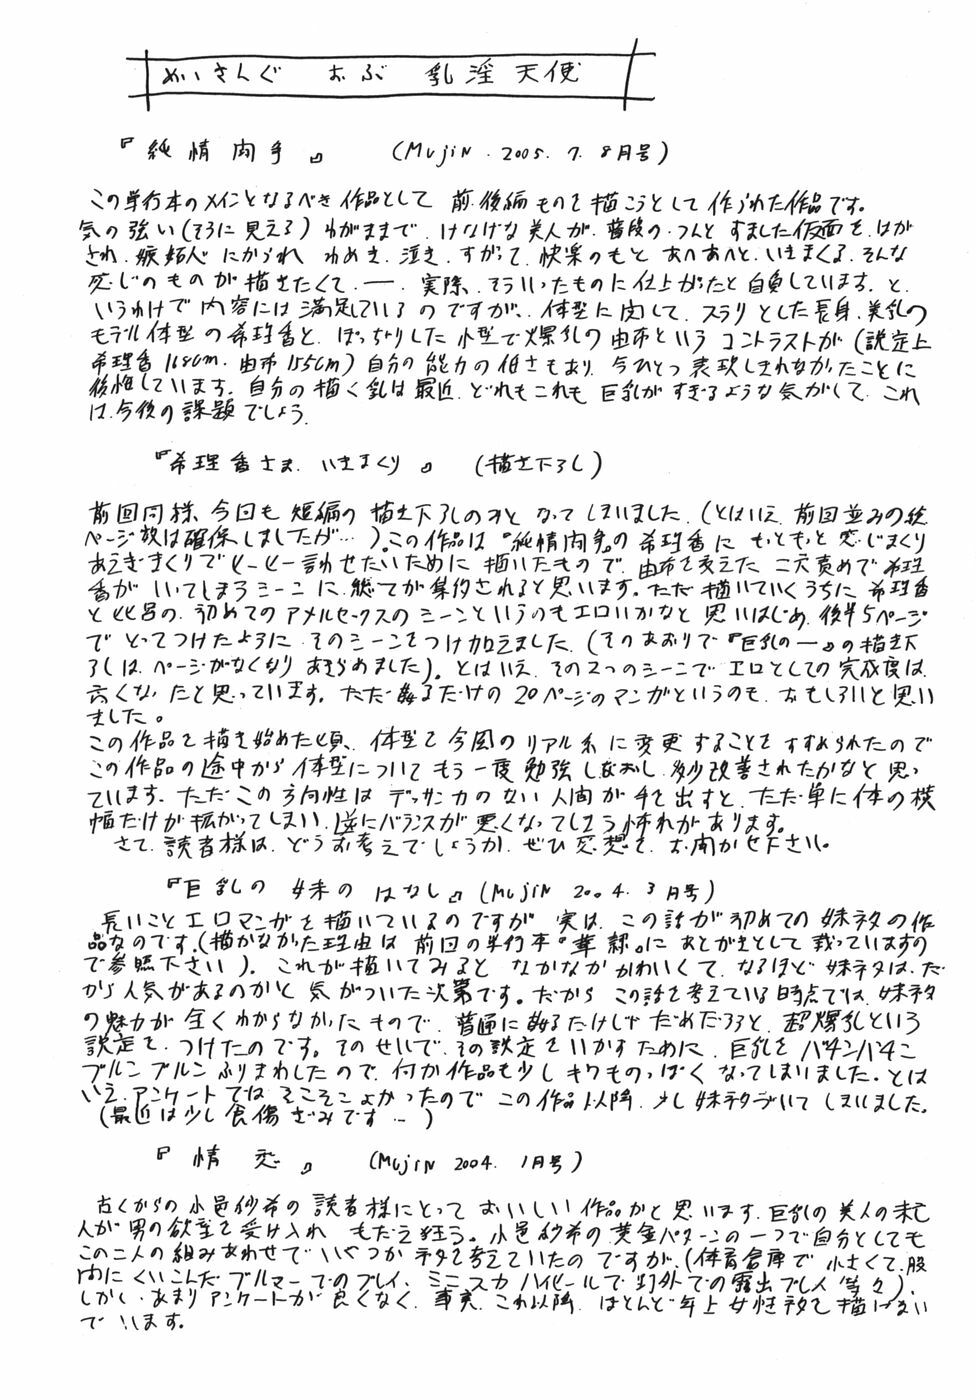 めいきんぐ おぶ 乳淫天使
『純情肉手』 (MujiN. 2005. 7. 8月号)
この単行本のメインとなるべき作品として 前.後編ものを描こうとして作られた作品です。
気の強い(そうに見える) わがままで、けなげな美人が、普段の、つんと すました仮面を、はが
され、嫉妬心にかられ わめき、泣き、すがって、快楽のもと あへあへと、いきまくる、そんな
感じのものが描きたくて、ー、実際、そういったものに仕上がったと自負しています。と、
いうわけで内容には満足しているのですが、体型に関して、スラリとした長身、美乳の
モデル体型の希理香と、ぽっちゃりした小型で爆乳の由布というコントラストが(設定上
希理香168cm. 由布155cm) 自分の能力の低さもあり、今ひとつ表現しきれなかったことに
後悔しています。自分の描く乳は最近、どれもこれも巨乳がすぎるような気がして、これ
は、今後の課題でしょう。
『希理香さま、いきまくり』 (描き下ろし)
前回同様、今回も短編の描き下ろしのみとなってしまいました、(とはいえ、前回並みの総
ページ数は確保しましたが…)。この作品は『純情肉手』の希理香にもともと感じまくり
あえぎまくりでヒーヒー言わせたいために描いたもので、由布を交えた二穴責めで希理
香がいってしまうシーンに、総てが集約されると思います。ただ描いていくうちに希理香
と 呂の、初めてのアナルセックスのシーンというのもエロいかなと思いはじめ、後半5ページ
でとってつけたようにそのシーンをつけ加えました、(そのあおりで『巨乳のー』の描き下
ろしは、ページがなくなりあきらめました)。とはいえ、その2つのシーンでエロとしての完成度は
高くなったと思っています。ただ るだけの20ページのマンガというのも、おもしろいと思い
ました。
この作品を描き始めた頃、体型を今風のリアル系に変更することをすすめられたので
この作品の途中から体型についてもう一度勉強しなおし、多少改善されたかなと思っ
ています。ただこの方向性はデッサン力のない人間が手を出すと、ただ単に体の横
幅だけが拡がってしまい、逆にバランスが悪くなってしまう怖れがあります。
さて、読者様は、どうお考えでしょうか、ぜひ感想を、お聞かせ下さい。
『巨乳の妹のはなし』(MujiN 2004. 3月号)
長いことエロマンガを描いているのですが 実は、この話が初めての妹ネタの作
品なのです、(描かなかった理由は前回の単行本『 』にあとがきとして載っていますの
で参照下さい)。これが描いてみるとなかなかかわいくて、なるほど妹ネタは、だ
から人気があるのかと気がついた次第です。だからこの話を考えている時点では、妹ネタ
の魅力が全くわからなかったもので、普通に るだけじゃだめだろうと、超爆乳という
設定を、つけたのです。そのせいで、その設定をいかすために、巨乳をバチンバチン
ブルンブルンふりまわしたので、何か作品も少しキワものっぽくなってしまいました。とは
いえ、アンケートでは、そこそこよかったのでこの作品以降、少し妹ネタづいてしまいました。
(最近は少し食傷ぎみです…)
『情恋』 (MujiN 2004. 1月号)
古くからの小邑紗希の読者様にとっておいしい作品かと思います、巨乳の美人の未亡
人が男の欲望を受け入れ、もだえ狂う。小邑紗希の黄金パターンの一つで自分としても
この二人の組みあわせでいくつかネタを考えていたのですが、(体育倉庫で小さくて、股
間にくいこんだブルマーでのプレイ、ミニスカハイヒールで町外での露出プレイ等々)、
しかし、あまりアンケートが良くなく、事実、これ以降、ほとんど年上女性ネタを描けない
でいます。